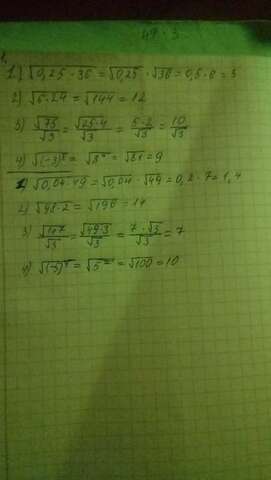 49·3
1.
1) √0,25·36 = √0,25 · √36 = 0,5·6 = 3
2) √6·24 = √144 = 12
3) √75/√3 = √25·4/√3 = 5·2/√3 = 10/√3
4) √(-3)⁴ = √3⁴ = √81 = 9
1) √0,04·49 = √0,04 · √49 = 0,2·7 = 1,4
2) √98·2 = √196 = 14
3) √147/√3 = √49·3/√3 = 7·√3/√3 = 7
4) = √100 = 10